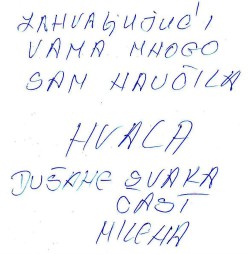 ZAHVALJUJUĆI
VAMA MNOGO
SAM NAUČILA
HVALA
DUŠANE SVAKA
ČAST
MILENA